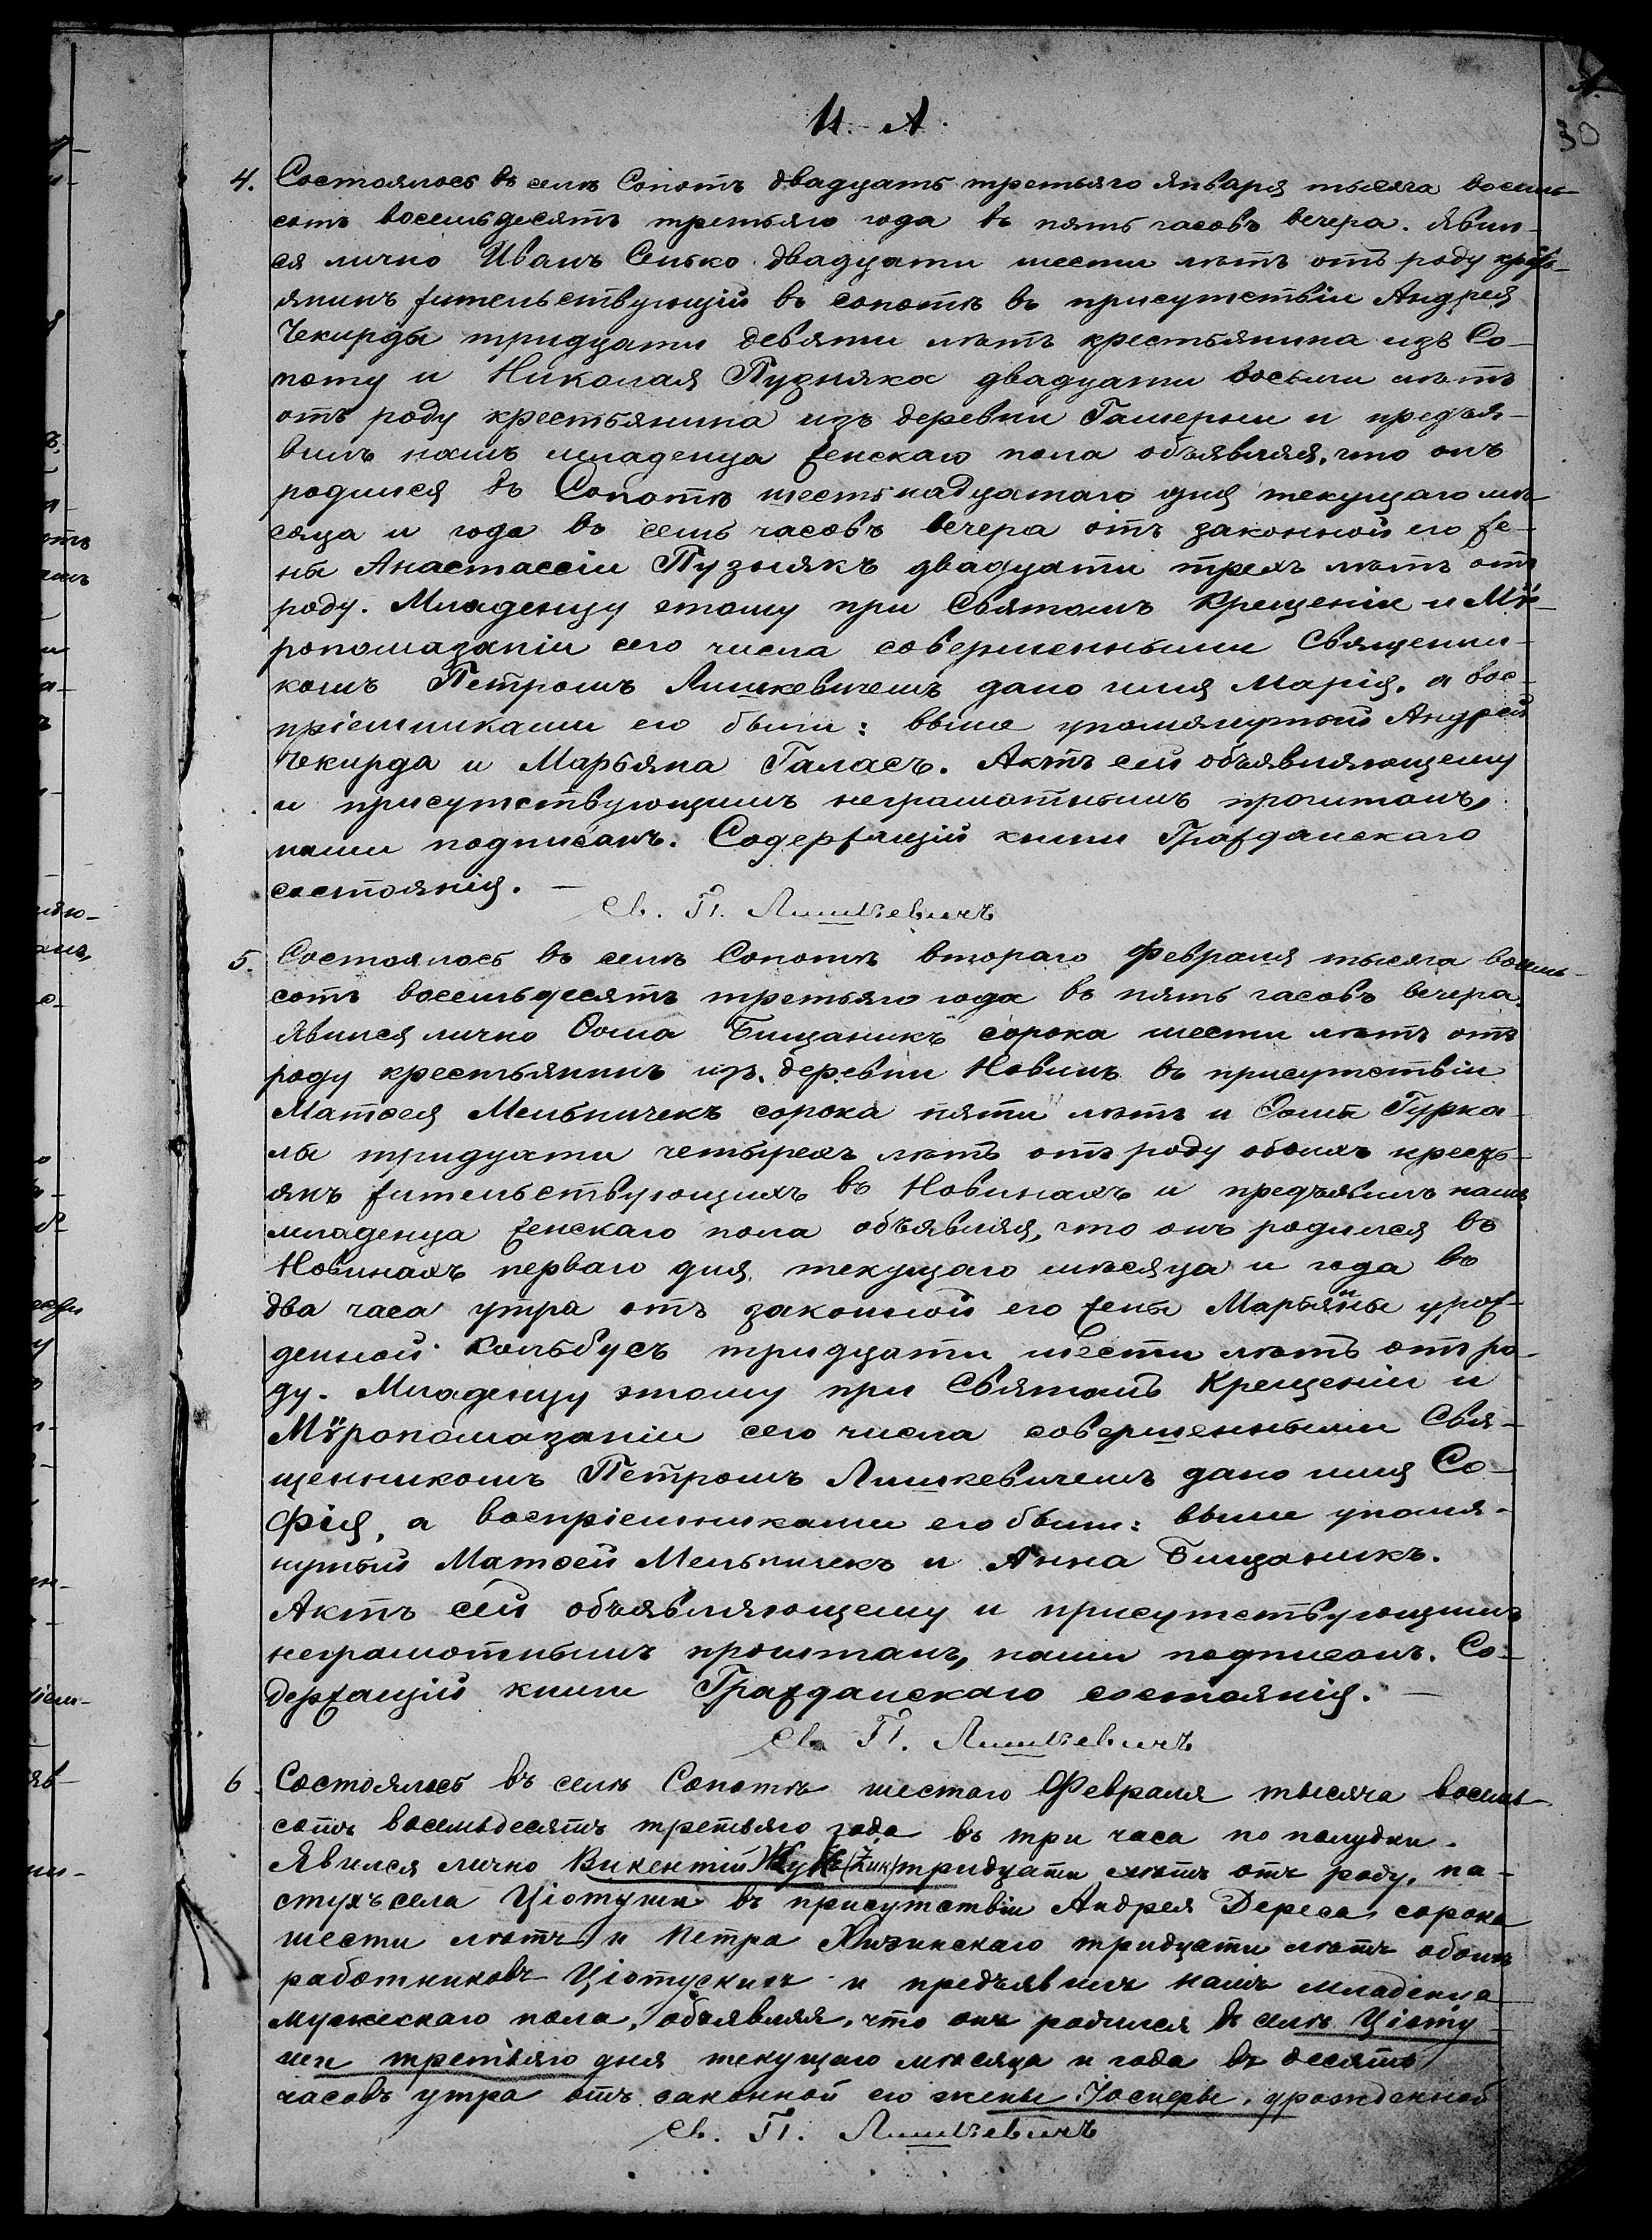 И. А.
30
4. Состоялось въ селѣ Сопотъ двадцать третьяго Января тысяча восемь-
сотъ восемьдесятъ третьяго года въ пять часовъ вечера. Явил-
ся лично Иванъ Сенько двадцати шести лѣтъ отъ роду кресть-
янинъ жительствующій въ сопотѣ въ присутствіи Андрея
Чекирды тридцати девяти лѣтъ крестьянина изъ Со-
поту и Николая Пузняка двадцати восьми лѣтъ
отъ роду крестьянина изъ деревни Гамерни и предъя-
вилъ намъ младенца женскаго пола объявляя, что онъ
родился въ Сопотѣ шестьнадцатаго дня текущаго мѣ-
сяца и года въ семь часовъ вечера отъ законной его же-
ны Анастассіи Пузнякъ двадцати трехъ лѣтъ отъ
роду. Младенцу этому при Святомъ Крещеніи и Мѵ-
ропомазаніи сего числа совершенными Священни-
комъ Петромъ Лишкевичемъ дано имя Марія, а вос-
пріемниками его были: выше упомянутый Андрей
Чекирда и Марьяна Галасъ. Актъ сей объявляющему
и присутствующимъ неграмотнымъ прочитанъ,
нами подписанъ. Содержащій книги Гражданскаго
состоянія. —
Св. П. Лишкевичъ
5. Состоялось въ селѣ Сопотѣ втораго Февраля тысяча восемь-
сотъ восемьдесятъ третьяго года въ пять часовъ вечера.
Явился лично Ѳома Бищаникъ сорока шести лѣтъ отъ
роду крестьянинъ изъ деревни Новинъ въ присутствіи
Матѳея Мельничекъ сорока пяти лѣтъ и Ѳомы Гурка-
лы тридцати четырехъ лѣтъ отъ роду обоихъ кресть-
янъ жительствующихъ въ Новинахъ и предъявилъ намъ
младенца женскаго пола объявляя, что онъ родился въ
Новинахъ перваго дня текущаго мѣсяца и года въ
два часа утра отъ законной его жены Марьянны урож-
денной Кольбусъ тридцати шести лѣтъ отъ ро-
ду. Младенцу этому при Святомъ Крещеніи и
Мѵропомазаніи сего числа совершенными Свя-
щенникомъ Петромъ Лишкевичемъ дано имя Со-
фія, а воспріемниками его были: выше упомя-
нутый Матѳей Мельничекъ и Анна Бищаникъ.
Актъ сей объявляющему и присутствующимъ
неграмотнымъ прочитанъ, нами подписанъ. Со-
держащій книги Гражданскаго состоянія. —
Св. П. Лишкевичъ
6. Состоялось въ селѣ Сопотѣ шестаго Февраля тысяча восемь-
сотъ восемьдесятъ третьяго года въ три часа по полудни.
Явился лично Викентій Жукъ тридцати лѣтъ отъ роду, па-
стухъ села Ціотуши въ присутствіи Андрея Дереса сорока
шести лѣтъ и Петра Хизинскаго тридцати лѣтъ обоихъ
работниковъ Ціотускихъ и предъявилъ намъ младенца
мужескаго пола, объявляя, что онъ родился въ селѣ Ціоту-
ши третьяго дня текущаго мѣсяца и года въ десять
часовъ утра отъ законной его жены урожденной
Св. П. Лишкевичъ